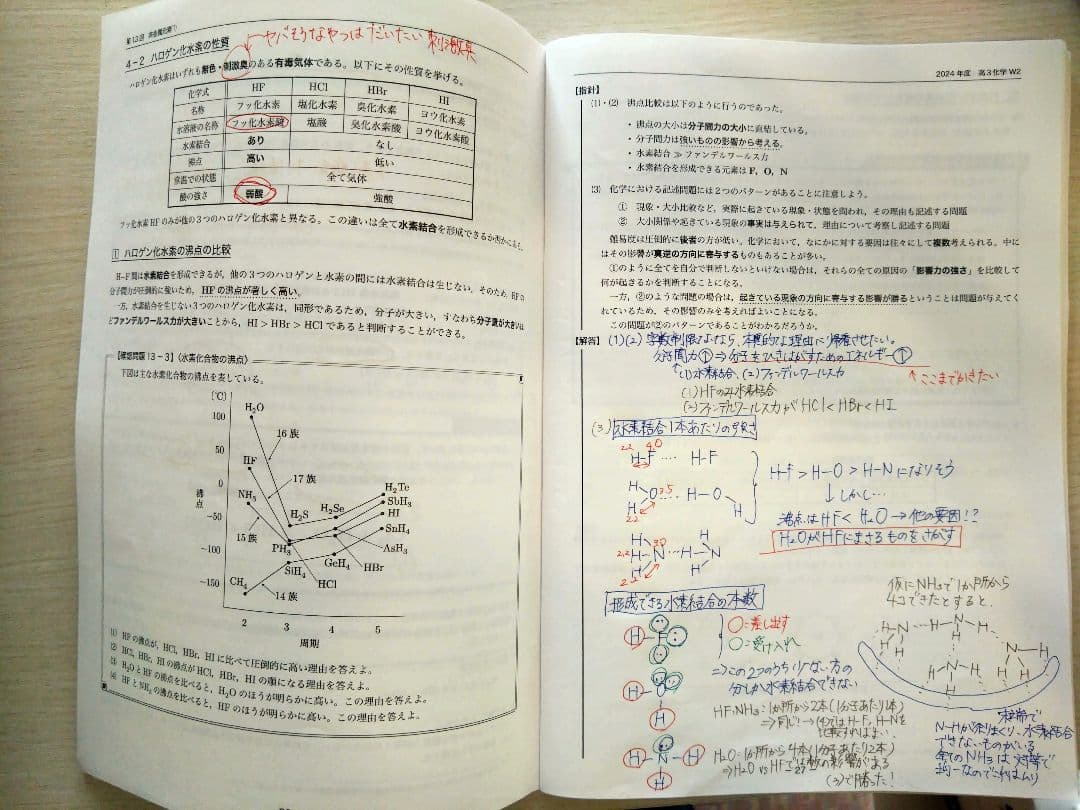 第13回 非金属元素(1)
4-2 ハロゲン化水素の性質
ヤバそうなやつはだいたい刺激臭
ハロゲン化水素はいずれも無色・刺激臭のある有毒気体である。以下にその性質を挙げる。
化学式 HF HCl HBr HI
名称 フッ化水素 塩化水素 臭化水素 ヨウ化水素
水溶液の名称 フッ化水素酸 塩酸 臭化水素酸 ヨウ化水素酸
水素結合 あり なし
沸点 高い 低い
常温での状態 全て気体
酸の強さ 弱酸 強酸
フッ化水素 HF のみが他の3つのハロゲン化水素と異なる。この違いは全て水素結合を形成できるか否かにある。
1 ハロゲン化水素の沸点の比較
H-F 間は水素結合を形成できるが、他の3つのハロゲンと水素の間には水素結合は生じない。そのため、HF の
分子間力が圧倒的に強いため、HF の沸点が著しく高い。
一方、水素結合を生じない3つのハロゲン化水素は、同形であるため、分子が大きい、すなわち分子量が大きいほ
どファンデルワールス力が大きいことから、HI > HBr > HCl であると判断することができる。
【確認問題13-3】〈水素化合物の沸点〉
下図は主な水素化合物の沸点を表している。
[℃]
100
50
0
沸点
-50
-100
-150
H₂O
16族
HF
17族
NH₃
15族
H₂S
H₂Se
H₂Te
SbH₃
HI
SnH₄
PH₃
AsH₃
SiH₄
GeH₄
HBr
HCl
CH₄
14族
2 3 4 5
周期
(1) HF の沸点が、HCl、HBr、HI に比べて圧倒的に高い理由を答えよ。
(2) HCl、HBr、HI の沸点が HCl、HBr、HI の順になる理由を答えよ。
(3) H₂O と HF の沸点を比べると、H₂O のほうが明らかに高い。この理由を答えよ。
(4) HF と NH₃ の沸点を比べると、HF のほうが明らかに高い。この理由を答えよ。
2024年度 高3化学W2
【指針】
(1)・(2) 沸点比較は以下のように行うのであった。
・沸点の大小は分子間力の大小に直結している。
・分子間力は強いものの影響から考える。
・水素結合 ≫ ファンデルワールス力
・水素結合を形成できる元素は F、O、N
(3) 化学における記述問題には2つのパターンがあることに注意しよう。
① 現象・大小比較など、実際に起きている現象・状態を問われ、その理由も記述する問題
② 大小関係や起きている現象の事実は与えられて、理由について考察し記述する問題
難易度は圧倒的に後者の方が低い。化学において、なにかに対する要因は往々にして複数考えられる。中に
はその影響が真逆の方向に寄与するものもあることが多い。
①のように全てを自分で判断しないといけない場合は、それらの全ての原因の「影響力の強さ」を比較して
何が起きるかを判断することになる。
一方、②のような問題の場合は、起きている現象の方向に寄与する影響が勝るということは問題が与えてく
れているため、その影響のみを考えればよいことになる。
この問題が②のパターンであることがわかるだろうか。
【解答】
(1)(2) 字数制限ないなら、本質的な理由に帰着させたい。
分子間力↑ ⇒ 分子をひきはがすためのエネルギー↑
↑(1)水素結合、(2)ファンデルワールス力
↑ここまでかきたい
(1) HFのみ水素結合
(2) ファンデルワールス力が HCl < HBr < HI
(3) 水素結合1本あたりの強さ
2.2 4.0
H-F ···· H-F
H O 3.5 ···· H-O
H 2.2 H
H 3.0 H
2.2 H-N ···· H-N
H 2.2 H
H-F > H-O > H-N になりそう
↓しかし…
沸点は HF < H₂O → 他の要因!?
H₂OがHFにまさるものをさがす
形成できる水素結合の本数
H-F
H-O
H
H-N-H
H
○=差し出す
○=受け入れ
⇒この2つのうち少ない方の
分しか水素結合できない
HF,NH₃:1か所から2本(1分子あたり1本)
⇒同じ!→(4)ではH-F,H-Nを
比較すればよい.
H₂O=1か所から4本(1分子あたり2本)
⇒H₂O vs HFでは本数の影響がある
(3)で勝った!
仮にNH₃で1か所から
4コできたとすると、
H-N H ··· H-N-H
H H
H-N-H
H
N H
H H
末端で
N-Hが余りまくり、水素結合
できないものがいる
全てのNH₃は対等で
均一なのでこれはムリ